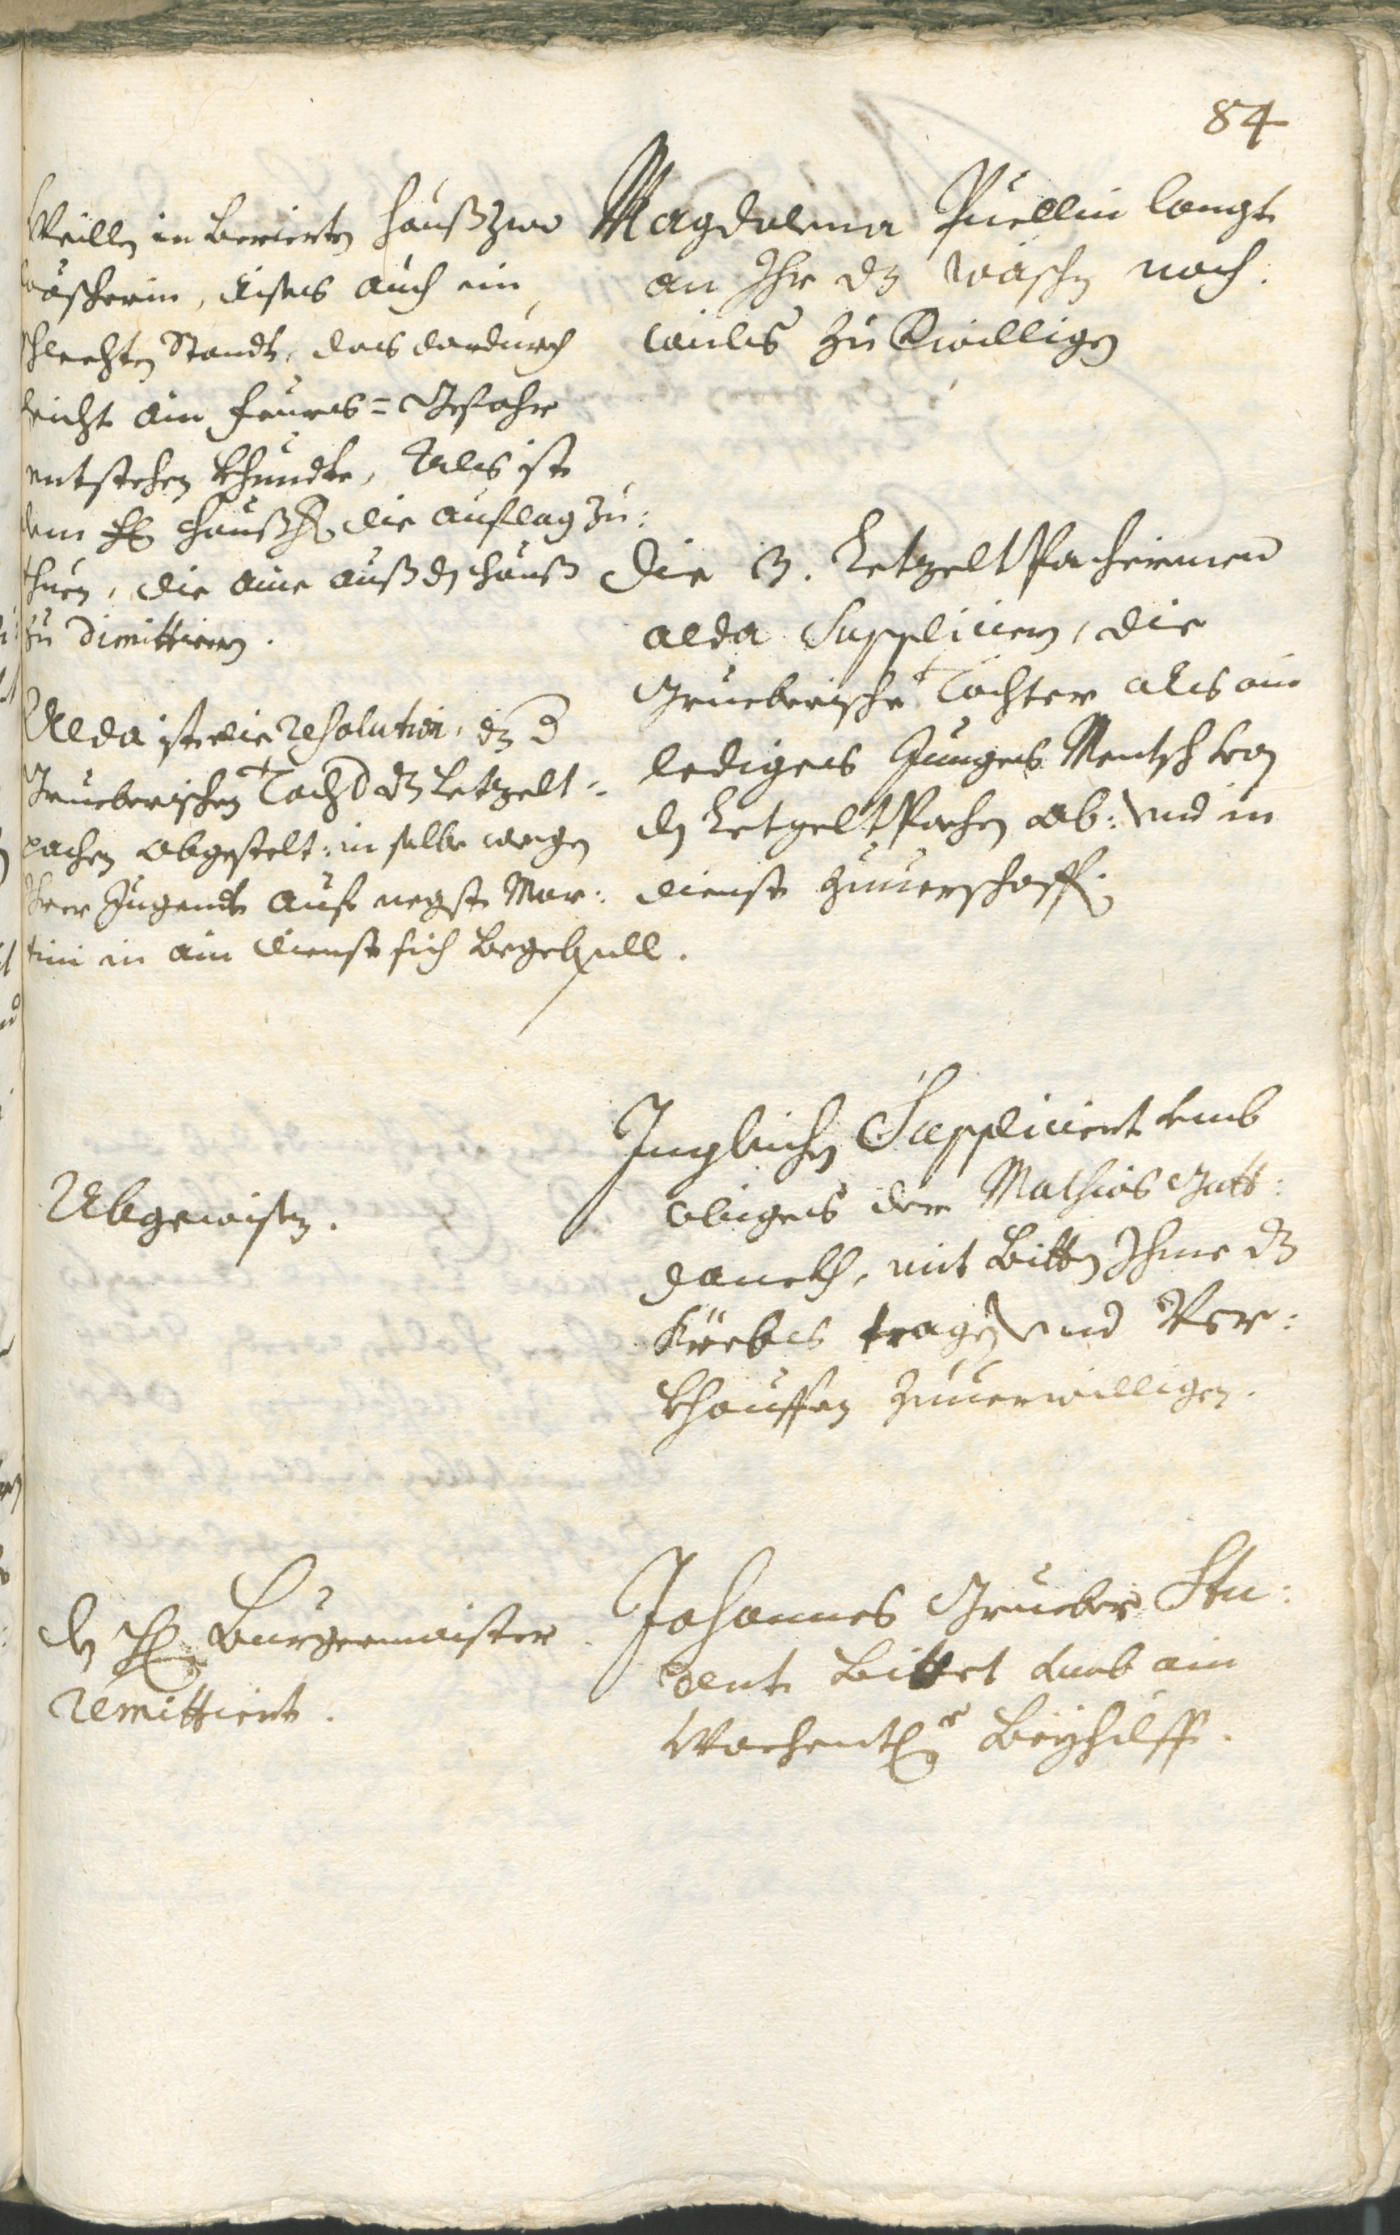 84
Weillen in berierten Hauß zwo
wäscherin, dises auch ein
schlechten Standt, das dardurch
leicht ain feurs=Gefahr
entstehen khundte, Als ist
dem H: Haußh: die auflag zu:
thuen, die aine auß dem Hauß
zu dimittiern.
Magdalena Puellin langt
an Ihr dz wäschen noch:
weils zu bewilligen
Alda ist die resolution, dz der
Grueberischen Tochter dz Letzelt:
pachen abgestelt: in selbe wegen
Ihrer Jugendt auf negst Mar:
tini in ain dienst sich begeben soll.
Die 3. Letzelt Pacherinnen
alda Supplicirn, die
Grueberische Tochter als ain
lediges Junges Mentsch von
dem Letzelt Pachen ab: und in
dienst zuuerschaffen
Abgewisen.
Ingleichen Supplicirt umb
obiges der Mathias Gatt:
, mit bitten Ihme dz
Kürbes tragen und Ver:
khauffen zuuerwilligen.
Dem H: Burgermaister
remittiert.
Johannes Grueber Stu:
dent bittet umb ain
Wochentl: Beyhilff.